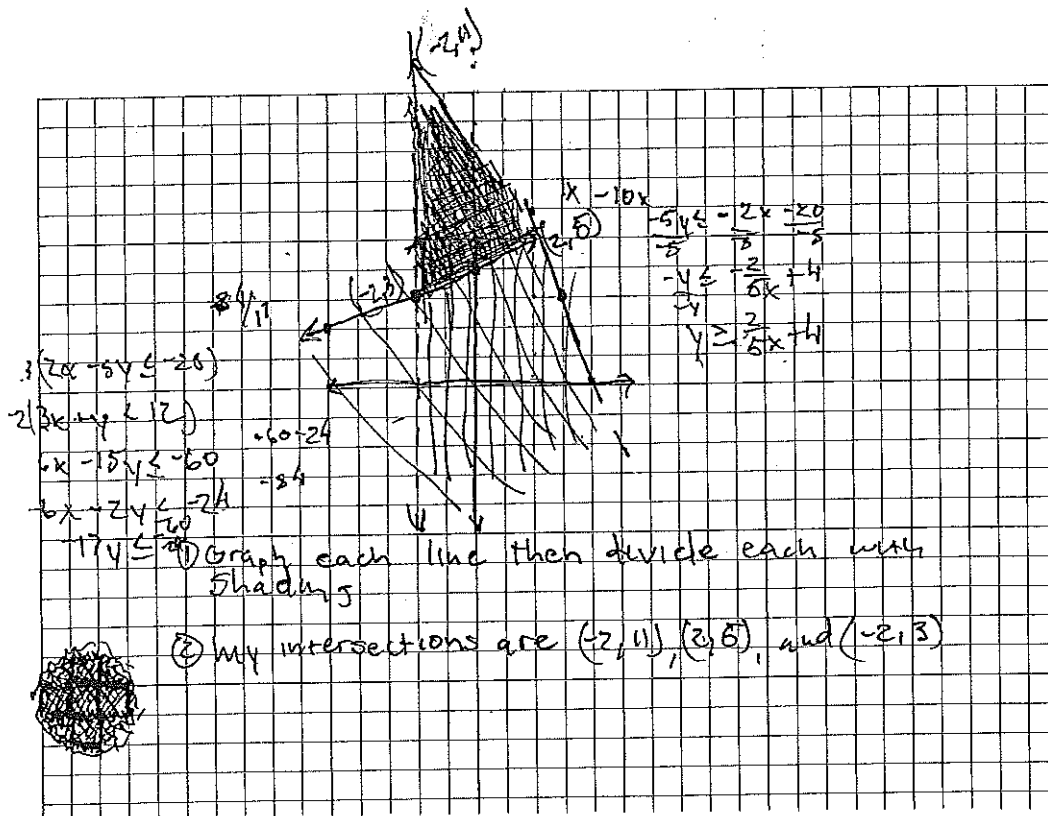 (-2,11)
x -10x
(2,5)
-5y ≤ -2x -20
-5 -5 -5
-y ≤ -2/5x + 4
-y
y ≥ 2/5x + 4
(-2,3)
84/17
3(2x -5y ≤ -20)
-2(3x + y ≤ 12)
6x -15y ≤ -60
-6x - 2y ≤ -24
-60-24
-84
-60
-17y ≤
① Graph each line then divide each with
Shading
② My intersections are (-2,11), (2,5), and (-2,3)